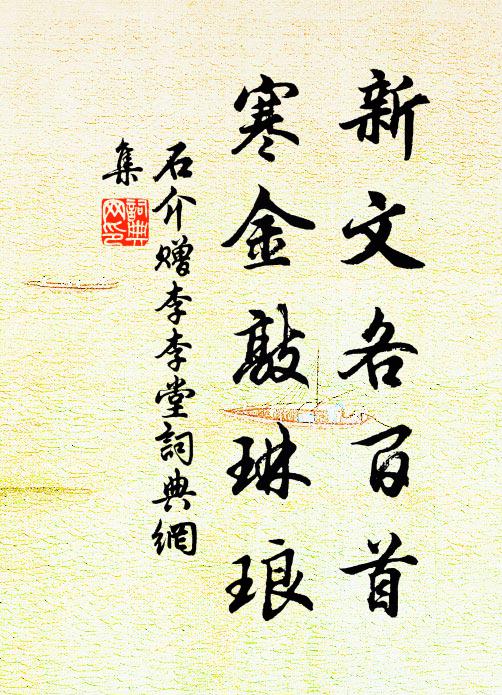 新文各百首
寒金敲琳琅
石介赠李李堂詞典網
集
詞典網印